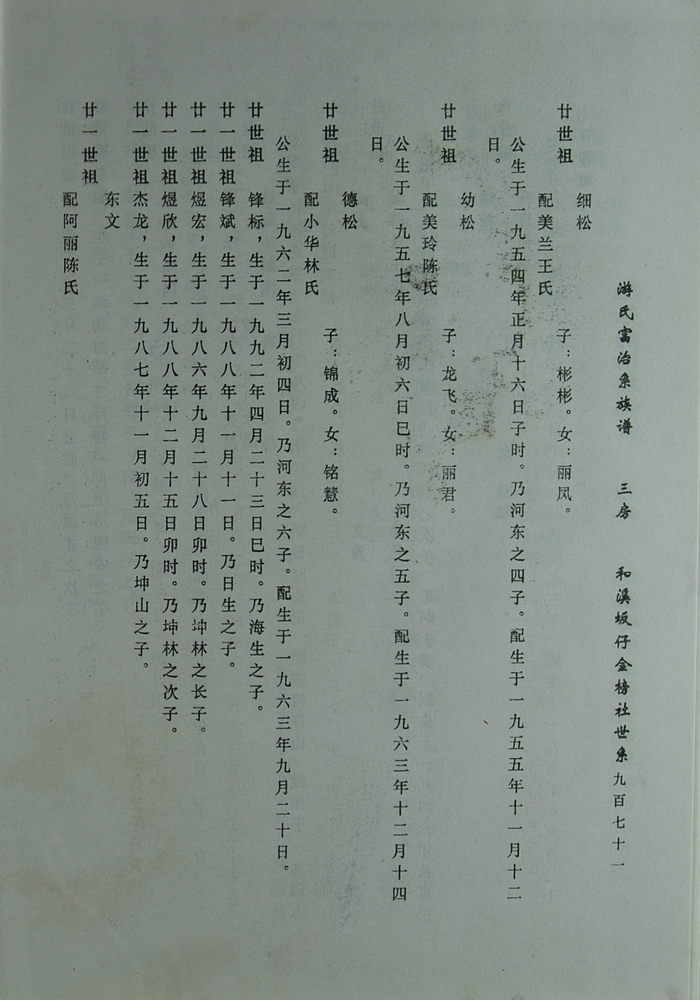 游氏富治系族谱 三房 和溪坂仔金榜社世系九百七十一
细松
廿世祖 子：彬彬。女：丽凤。
配美兰王氏
公生于一九五四年正月十六日子时。乃河东之四子。配生于一九五五年十一月十二
日。
幼松
廿世祖 子：龙飞。女：丽君。
配美玲陈氏
公生于一九五七年八月初六日巳时。乃河东之五子。配生于一九六三年十二月十四
日。
德松
廿世祖 子：锦成。女：铭慧。
配小华林氏
公生于一九六二年三月初四日。乃河东之六子。配生于一九六三年九月二十日。
廿世祖 锋标，生于一九九二年四月二十三日巳时。乃海生之子。
廿一世祖锋斌，生于一九八八年十一月十一日。乃日生之子。
廿一世祖煜宏，生于一九八六年九月二十八日卯时。乃坤林之长子。
廿一世祖煜欣，生于一九八八年十二月十五日卯时。乃坤林之次子。
廿一世祖杰龙，生于一九八七年十一月初五日。乃坤山之子。
东文
廿一世祖
配阿丽陈氏